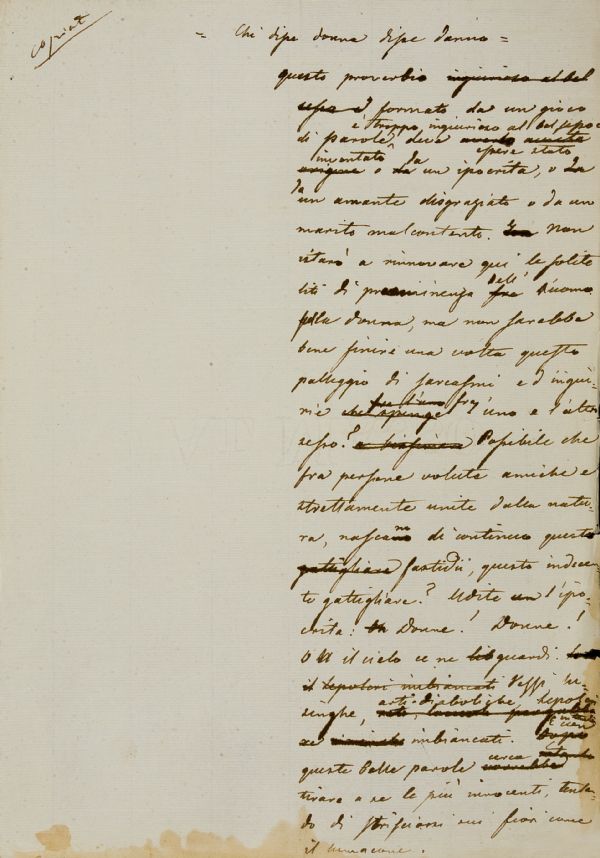 copiat
= Chi disse donna disse danno =
questo proverbio ingiurioso al bel
sesso è formato da un gioco
è troppo ingiurioso al bel sesso
di parole, deve averlo
essere stato
inventato da
o da un ipocrita, o da
da
un amante disgraziato o da un
marito malcontento. Non
starò a rinnovare qui le solite
dell'
liti di preminenza fra l'uomo
sulla donna, ma non sarebbe
bene finire una volta questo
palleggio di sarcasmi e d'ingiu-
fra
rie che l'uno e l'altro
sesso? Possibile che
fra persone volute amiche e
strettamente unite dalla natu-
ra, nascano di continuo questi
gattigliare fastidii, questo indecen-
te gattigliare? Udite un l'ipo-
crita: Donne! Donne!
Oh il cielo ce ne guardi.
il sepolcri imbiancati Vezzi lu-
arti diaboliche, sepol
singhe, reti,
imbiancati. Dopo
cerca
queste belle parole vorrebbe
tirare a se le più innocenti, tentan
do di strisciarsi sui fiori come
il lumacone.